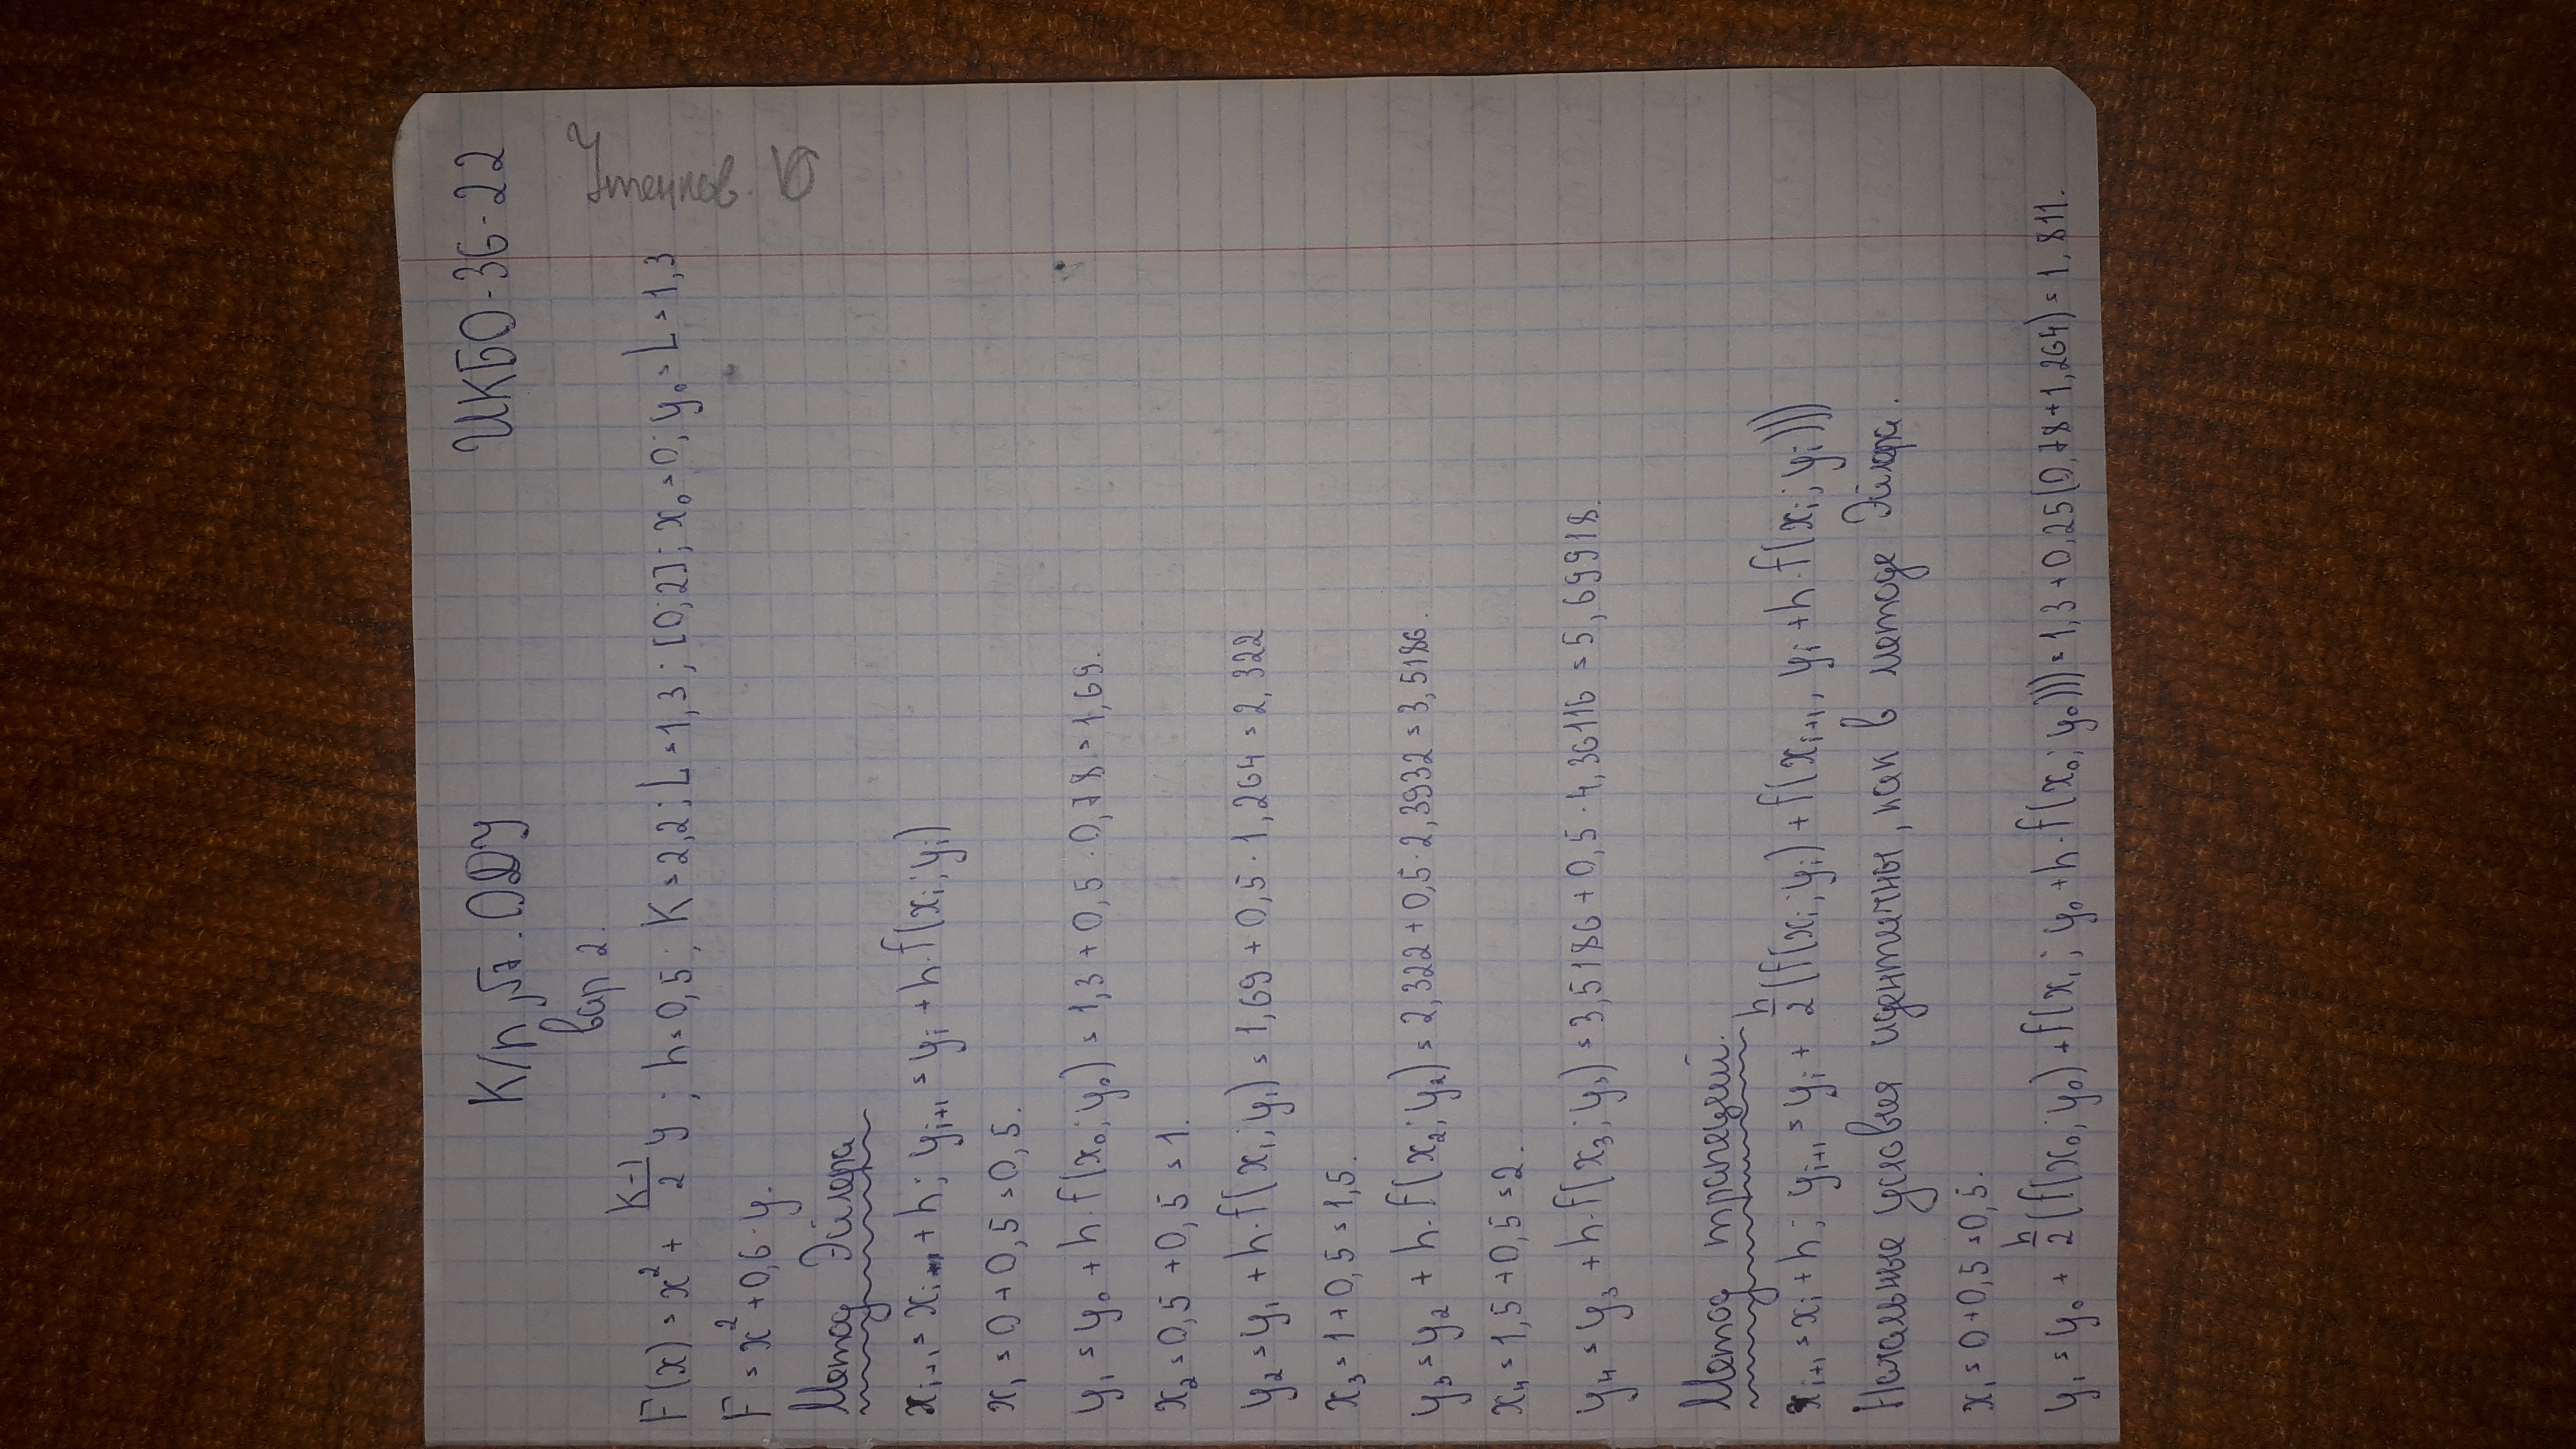 К/р №7. ОДУ
ИКБО-36-22
вар 2.
F(x) = x² + (K-1)/2 y ; h=0,5; K=2,2; L=1,3; [0;2]; x₀=0; y₀=L=1,3
F = x² + 0,6·y.
Метод Эйлера
xᵢ₊₁ = xᵢ + h; yᵢ₊₁ = yᵢ + h·f(xᵢ; yᵢ)
x₁ = 0 + 0,5 = 0,5.
y₁ = y₀ + h·f(x₀; y₀) = 1,3 + 0,5 · 0,78 = 1,69.
x₂ = 0,5 + 0,5 = 1.
y₂ = y₁ + h·f(x₁; y₁) = 1,69 + 0,5 · 1,264 = 2,322
x₃ = 1 + 0,5 = 1,5.
y₃ = y₂ + h·f(x₂; y₂) = 2,322 + 0,5 · 2,3932 = 3,5186.
x₄ = 1,5 + 0,5 = 2.
y₄ = y₃ + h·f(x₃; y₃) = 3,5186 + 0,5 · 4,36116 = 5,69918.
Метод трапеций.
xᵢ₊₁ = xᵢ + h; yᵢ₊₁ = yᵢ + h/2 (f(xᵢ; yᵢ) + f(xᵢ₊₁, yᵢ + h·f(xᵢ; yᵢ)))
Начальные условия идентичны, как в методе Эйлера.
x₁ = 0 + 0,5 = 0,5.
y₁ = y₀ + h/2 (f(x₀; y₀) + f(x₁; y₀ + h·f(x₀; y₀))) = 1,3 + 0,25(0,78 + 1,264) = 1,811.